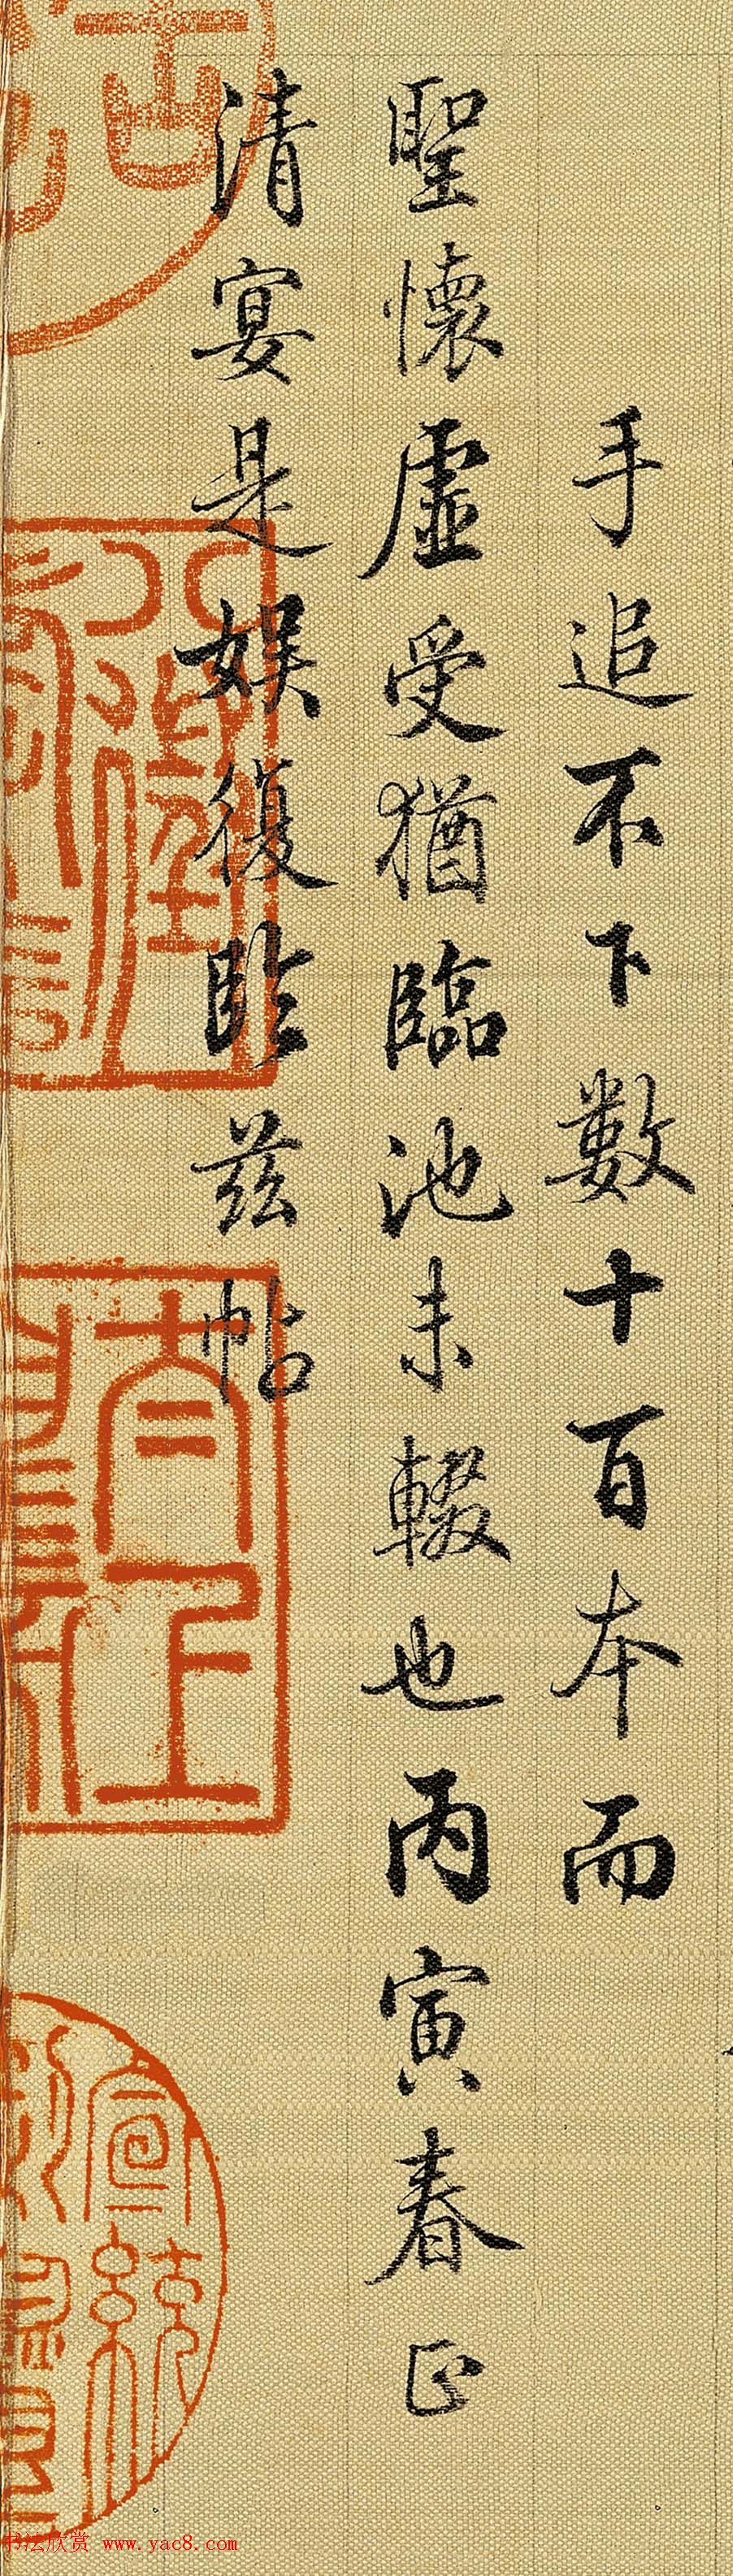 手追不下數十百本而
聖懷虛受猶臨池未輟也丙寅春正
清宴是娱復臨兹帖
太上
八徵耄念
宣統
书法欣赏 www.yac8.com